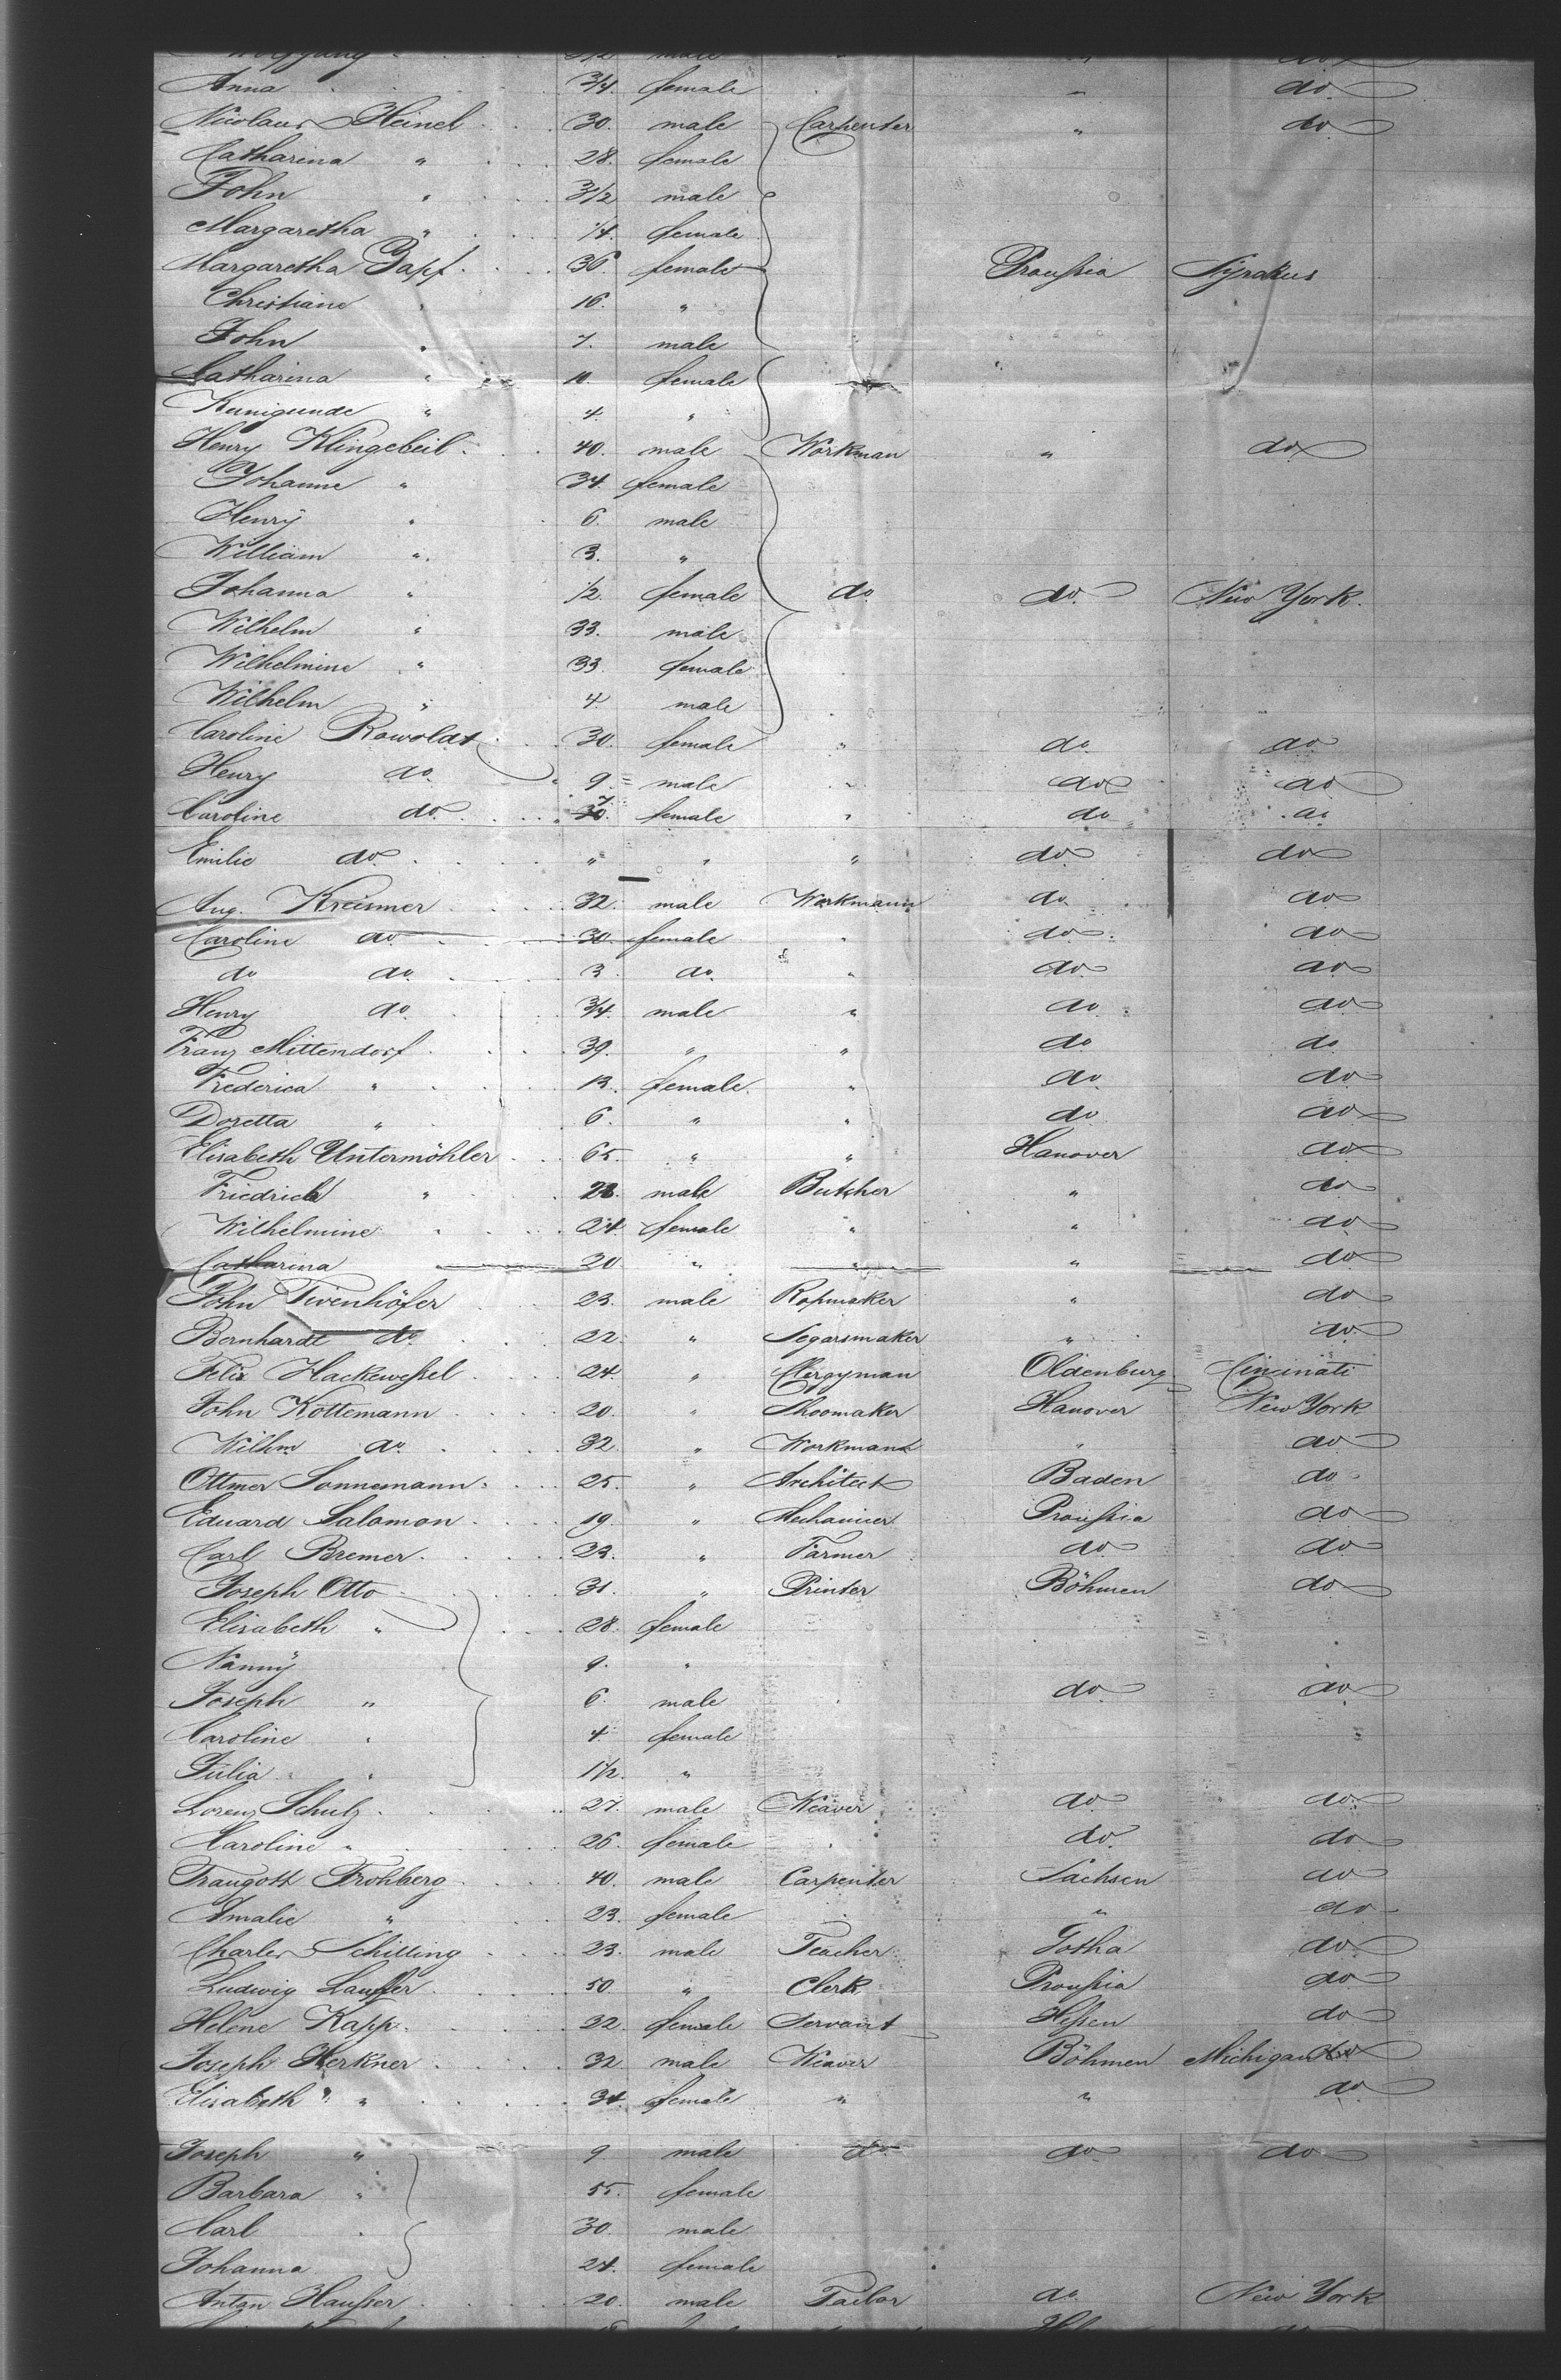 Wolfgang " 3 1/2 male " do
Anna 3/4. female " do
Nicolaus Heinel 30. male Carpenter " do
Catharina " 28. female
John " 3 1/2 male
Margaretha " 1/4. female
Margaretha Zapf 36. female Proußia Syrakus
Christiane " 16. "
John " 7. male
Catharina " 10. female
Kunigunde " 4. "
Henry Klingebeil 40. male Workman " do
Johanne " 34. female
Henry " 6. male
William " 3. "
Johanna " 1/2. female do do. New York.
Wilhelm " 33. male
Wilhelmine " 33. female
Wilhelm " 4 male
Caroline Rowoldt 30. female " do do
Henry do 9 male " do do
Caroline do 7 female " do do
Emilie do " " " do do
Aug. Kreimer 32. male Workmann do do
Caroline do 30. female " do do
do do 3 do. " do do
Henry do. 3/4. male " do do
Franz Mittendorf 39. " " do do
Frederica " 13. female. " do do
Doretta " 6. " " do do
Elisabeth Untermöhler 65. " " Hanover do
Friedrich " 28. male Butcher " do
Wilhelmine " 24. female " " do
Catharina " 20 " " " do
John Twenhöfer 23. male Ropmaker " do
Bernhardt do 22. " Segarsmaker " do
Felix Hackeweßel 24. " Clergyman Oldenburg Cincinati
John Kottemann 20. " Shoomaker Hanover New York
Wilhm do. 32. " Workmann " do
Ottmer Sonnemann 25. " Architect Baden do
Eduard Salomon 19. " Mechanicer Proußia do
Carl Bremer 23. " Farmer do do
Joseph Otto 31. " Printer Böhmen do
Elisabeth " 28. female
Nanny " 9. "
Joseph " 6. male do do
Caroline " 4. female
Julia " 1 1/2. "
Lorenz Schulz 27. male Weaver do do
Karoline " 26. female " do do
Traugott Frohberg 40. male Carpenter Sachsen do
Amalie " 23. female " " do
Charles Schilling 23. male Teacher Gotha do
Ludwig Lauffer 50 " Clerk Proußia do
Helene Kapp 22. female Servant Heßen do
Joseph Herkner 32 male Weaver Böhmen Michigan
Elisabeth " 34. female " " do
Joseph " 9. male do do do
Barbara " 55. female
Carl " 30. male
Johanna 24. female
Anton Haußer 20. male Tailor do New York